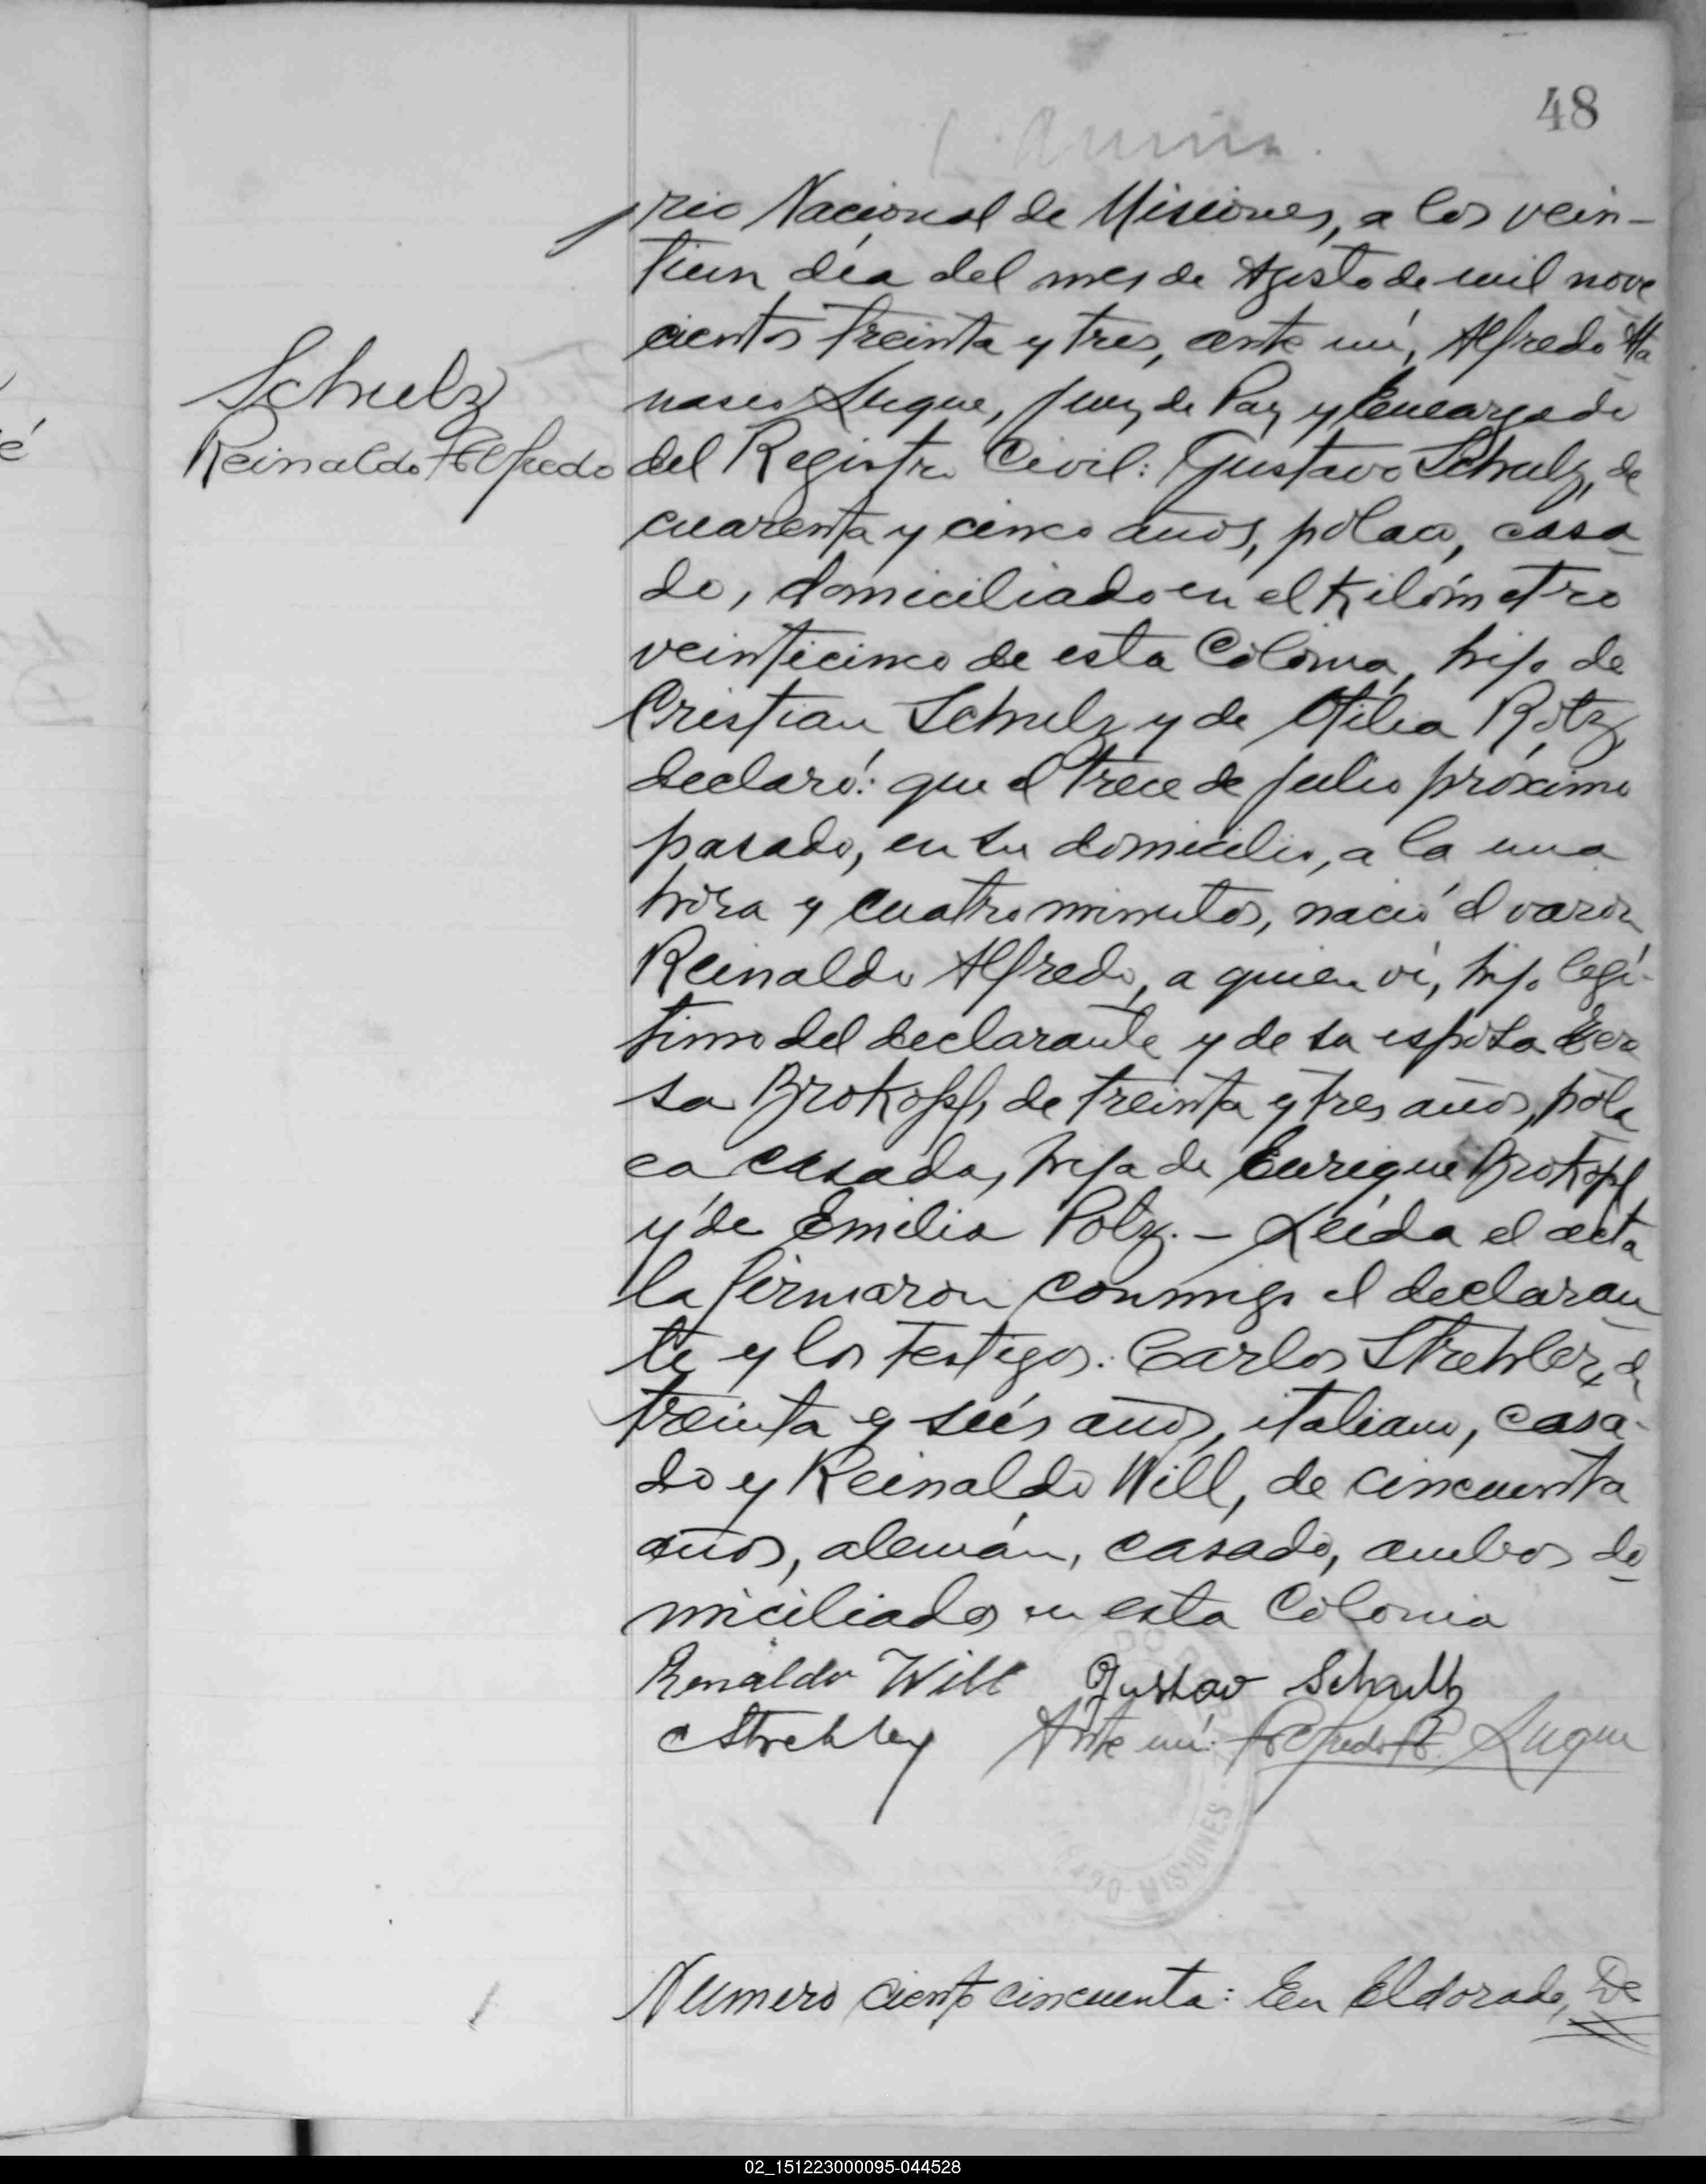 48
rio Nacional de Misiones, a los vein-
tiun día del mes de Agosto de mil nove
cientos treinta y tres, ante mí, Alfredo Ata
nasio Luque, Juez de Paz y Encargado
Schulz
Reinaldo Alfredo
del Registro Civil: Gustavo Schulz, de
cuarenta y cinco años, polaco, casa
do, domiciliado en el Kilómetro
veinticinco de esta Colonia, hijo de
Cristian Schulz y de Otilia Rotz,
declaró: que el trece de Julio próximo
pasado, en su domicilio, a la una
hora y cuatro minutos, nació el varón
Reinaldo Alfredo, a quien ví, hijo legí-
timo del declarante y de su esposa
sa Brokopf, de treinta y tres años, pola
ca casada, hija de Enrique Brokopf
y de Emilia Potz. - Leída el acta
la firmaron conmigo el declaran
te y los testigos: Carlos Strehler, de
treinta y seis años, italiano, casa-
do y Reinaldo Will, de cincuenta
años, alemán, casado, ambos do
miciliados en esta Colonia
Renaldo Will Gustav Schultz
C Strehler Ante mí: Alfredo A. Luque
MISIONES
Numero ciento cincuenta: En Eldorado, De
02_151223000095-044528